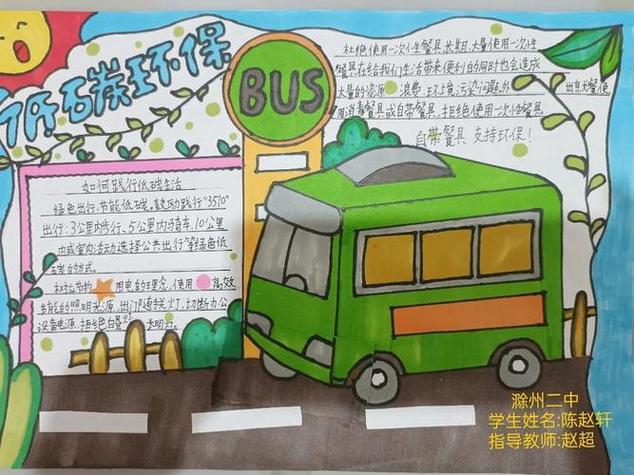 低碳环保
BUS
杜绝使用一次性餐具.长期.大量使用一次性
餐具在给我们生活带来便利的同时也会造成
大量的资源 浪费.环境污染问题.外 出就餐使
用消毒餐具或自带餐具.拒绝使用一次性餐具
自带餐具 支持环保!
如何践行低碳生活
绿色出行.节能低碳.鼓励践行"3510"
出行:3公里内步行、5公里内骑车、10公里
内或室内活动选择公共出行"等绿色低
碳的方式.
树立节约 用电的理念,使用 高效
节能的照明光源,出门随手关灯,切断办公
设备电源.拒绝白昼灯 长明灯.
滁州二中
学生姓名:陈赵轩
指导教师:赵超